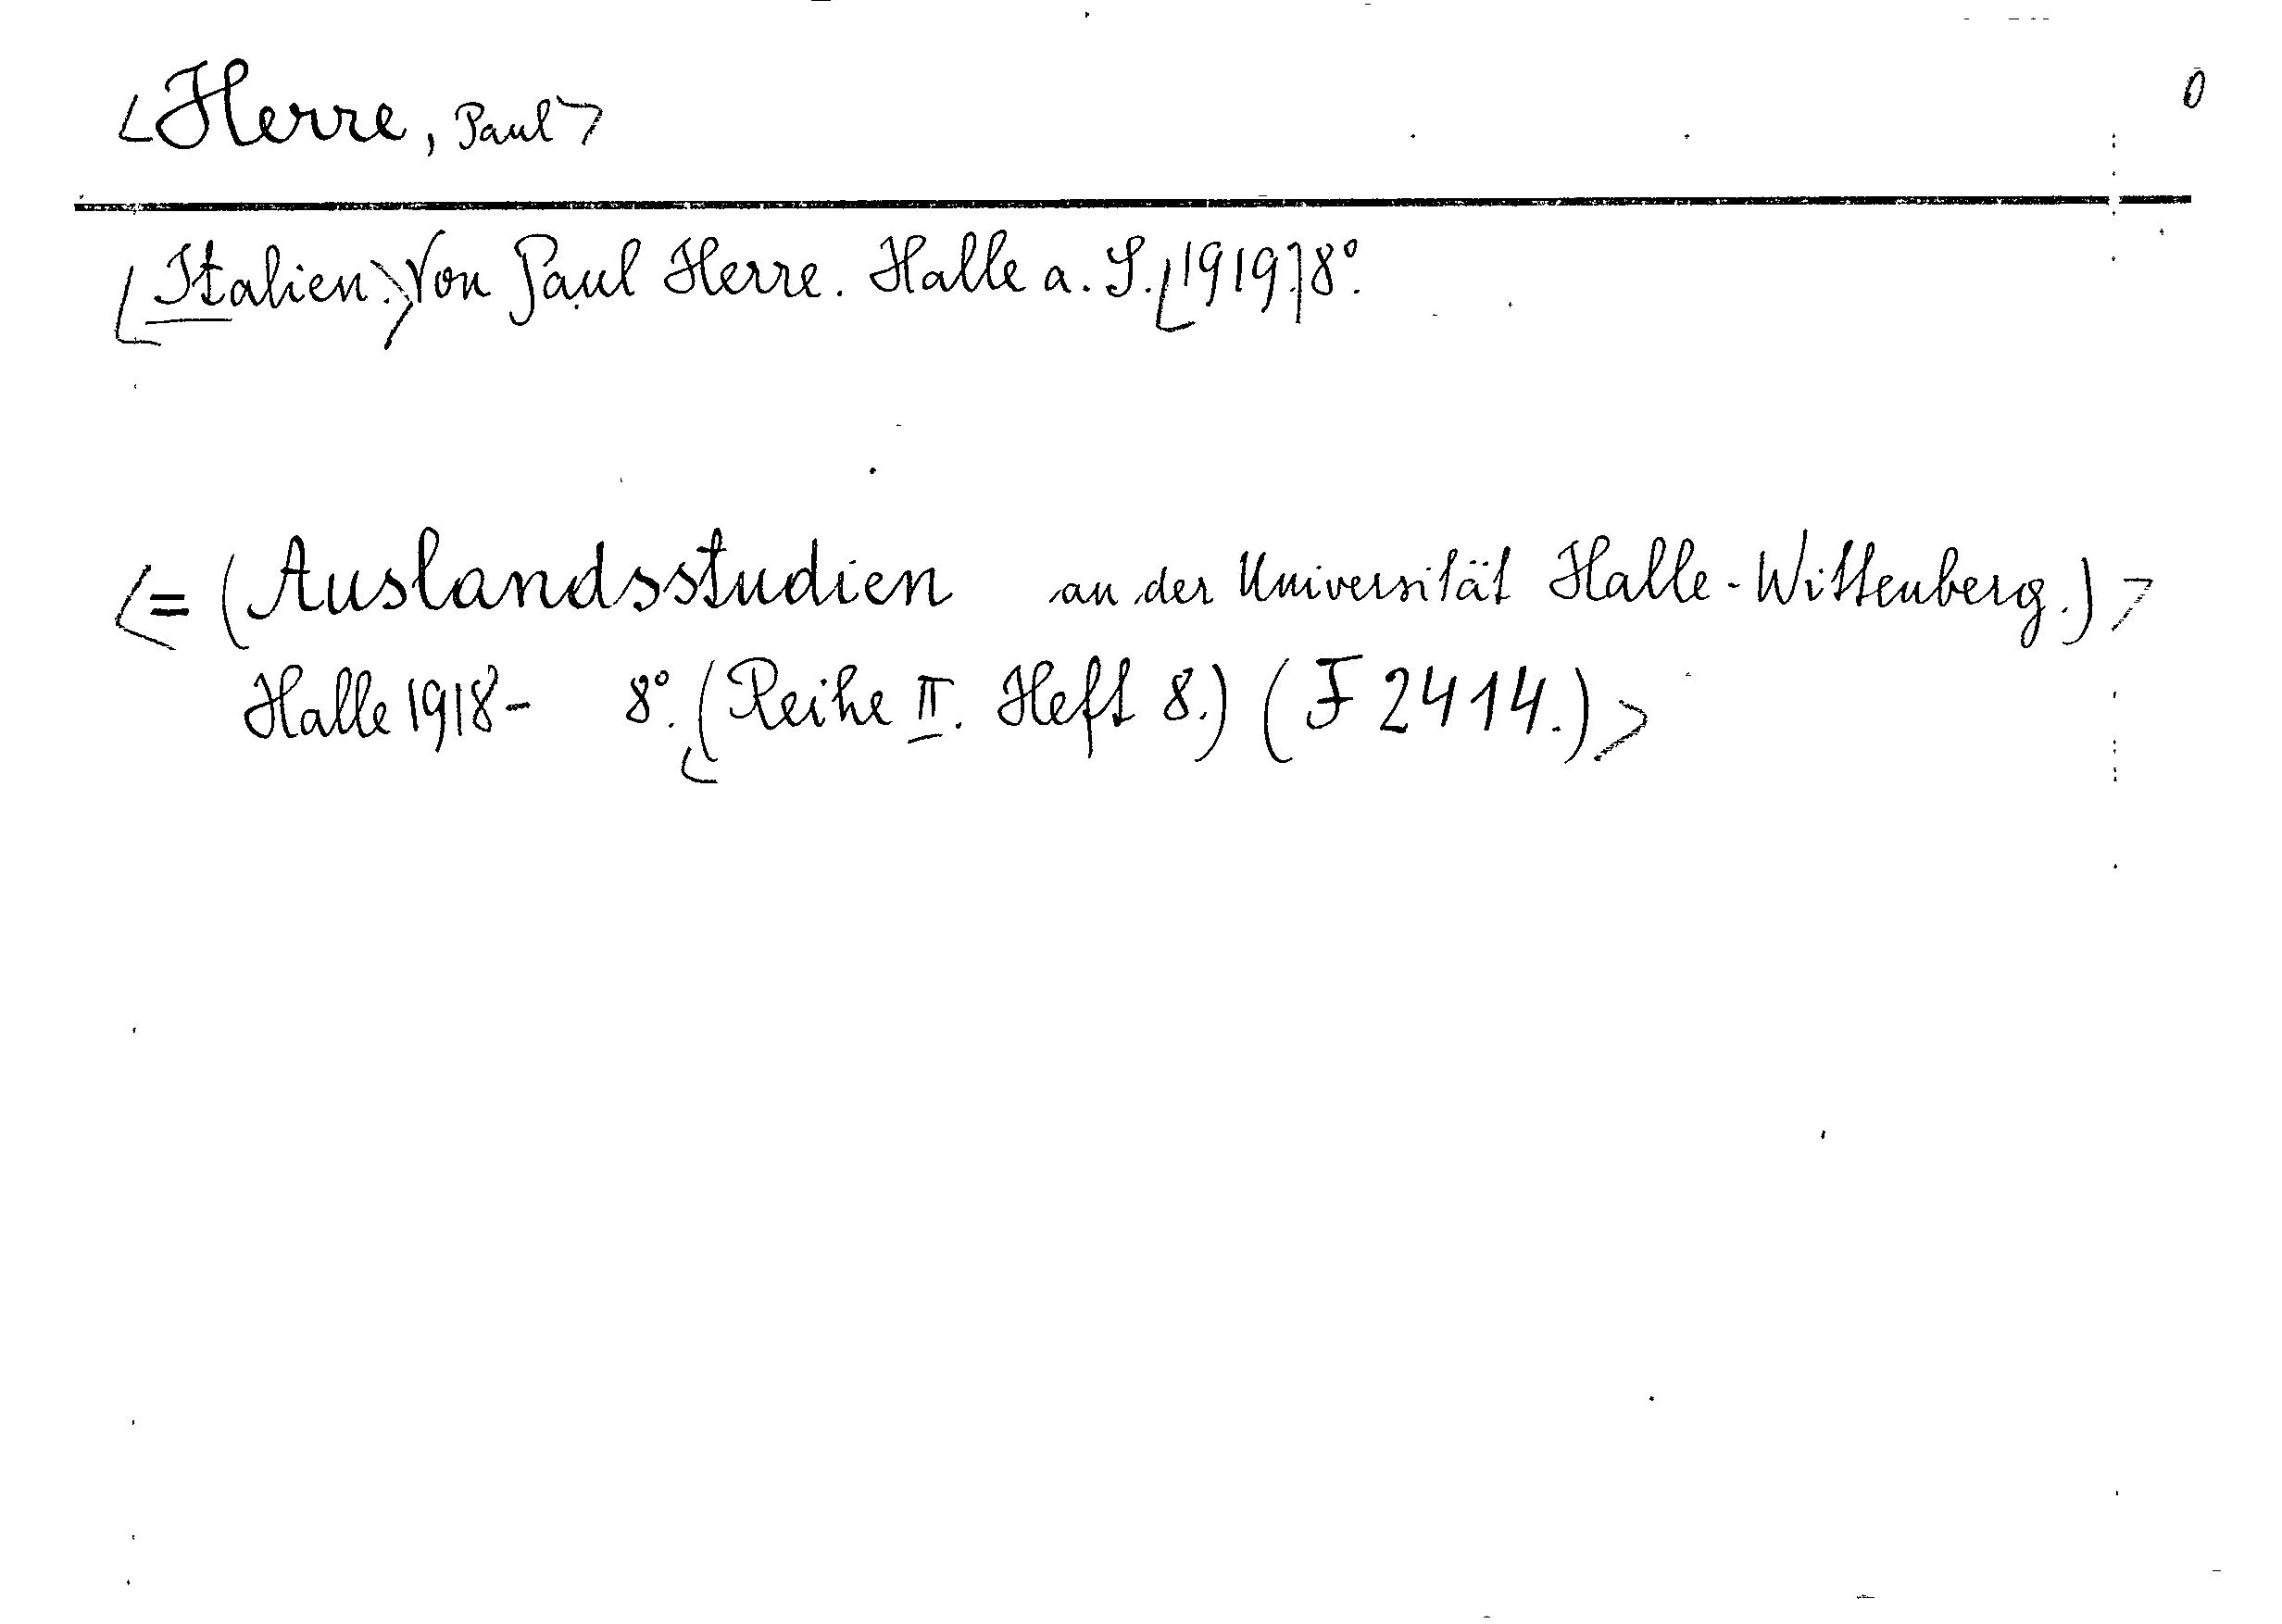 <Herre, Paul> 0
[Italien.> Von Paul Herre. Halle a. S. [1919] 8°.
<= (Auslandsstudien an der Universität Halle-Wittenberg.)>
Halle 1918- 8°. <(Reihe II. Heft 8.) (F 2414.)>